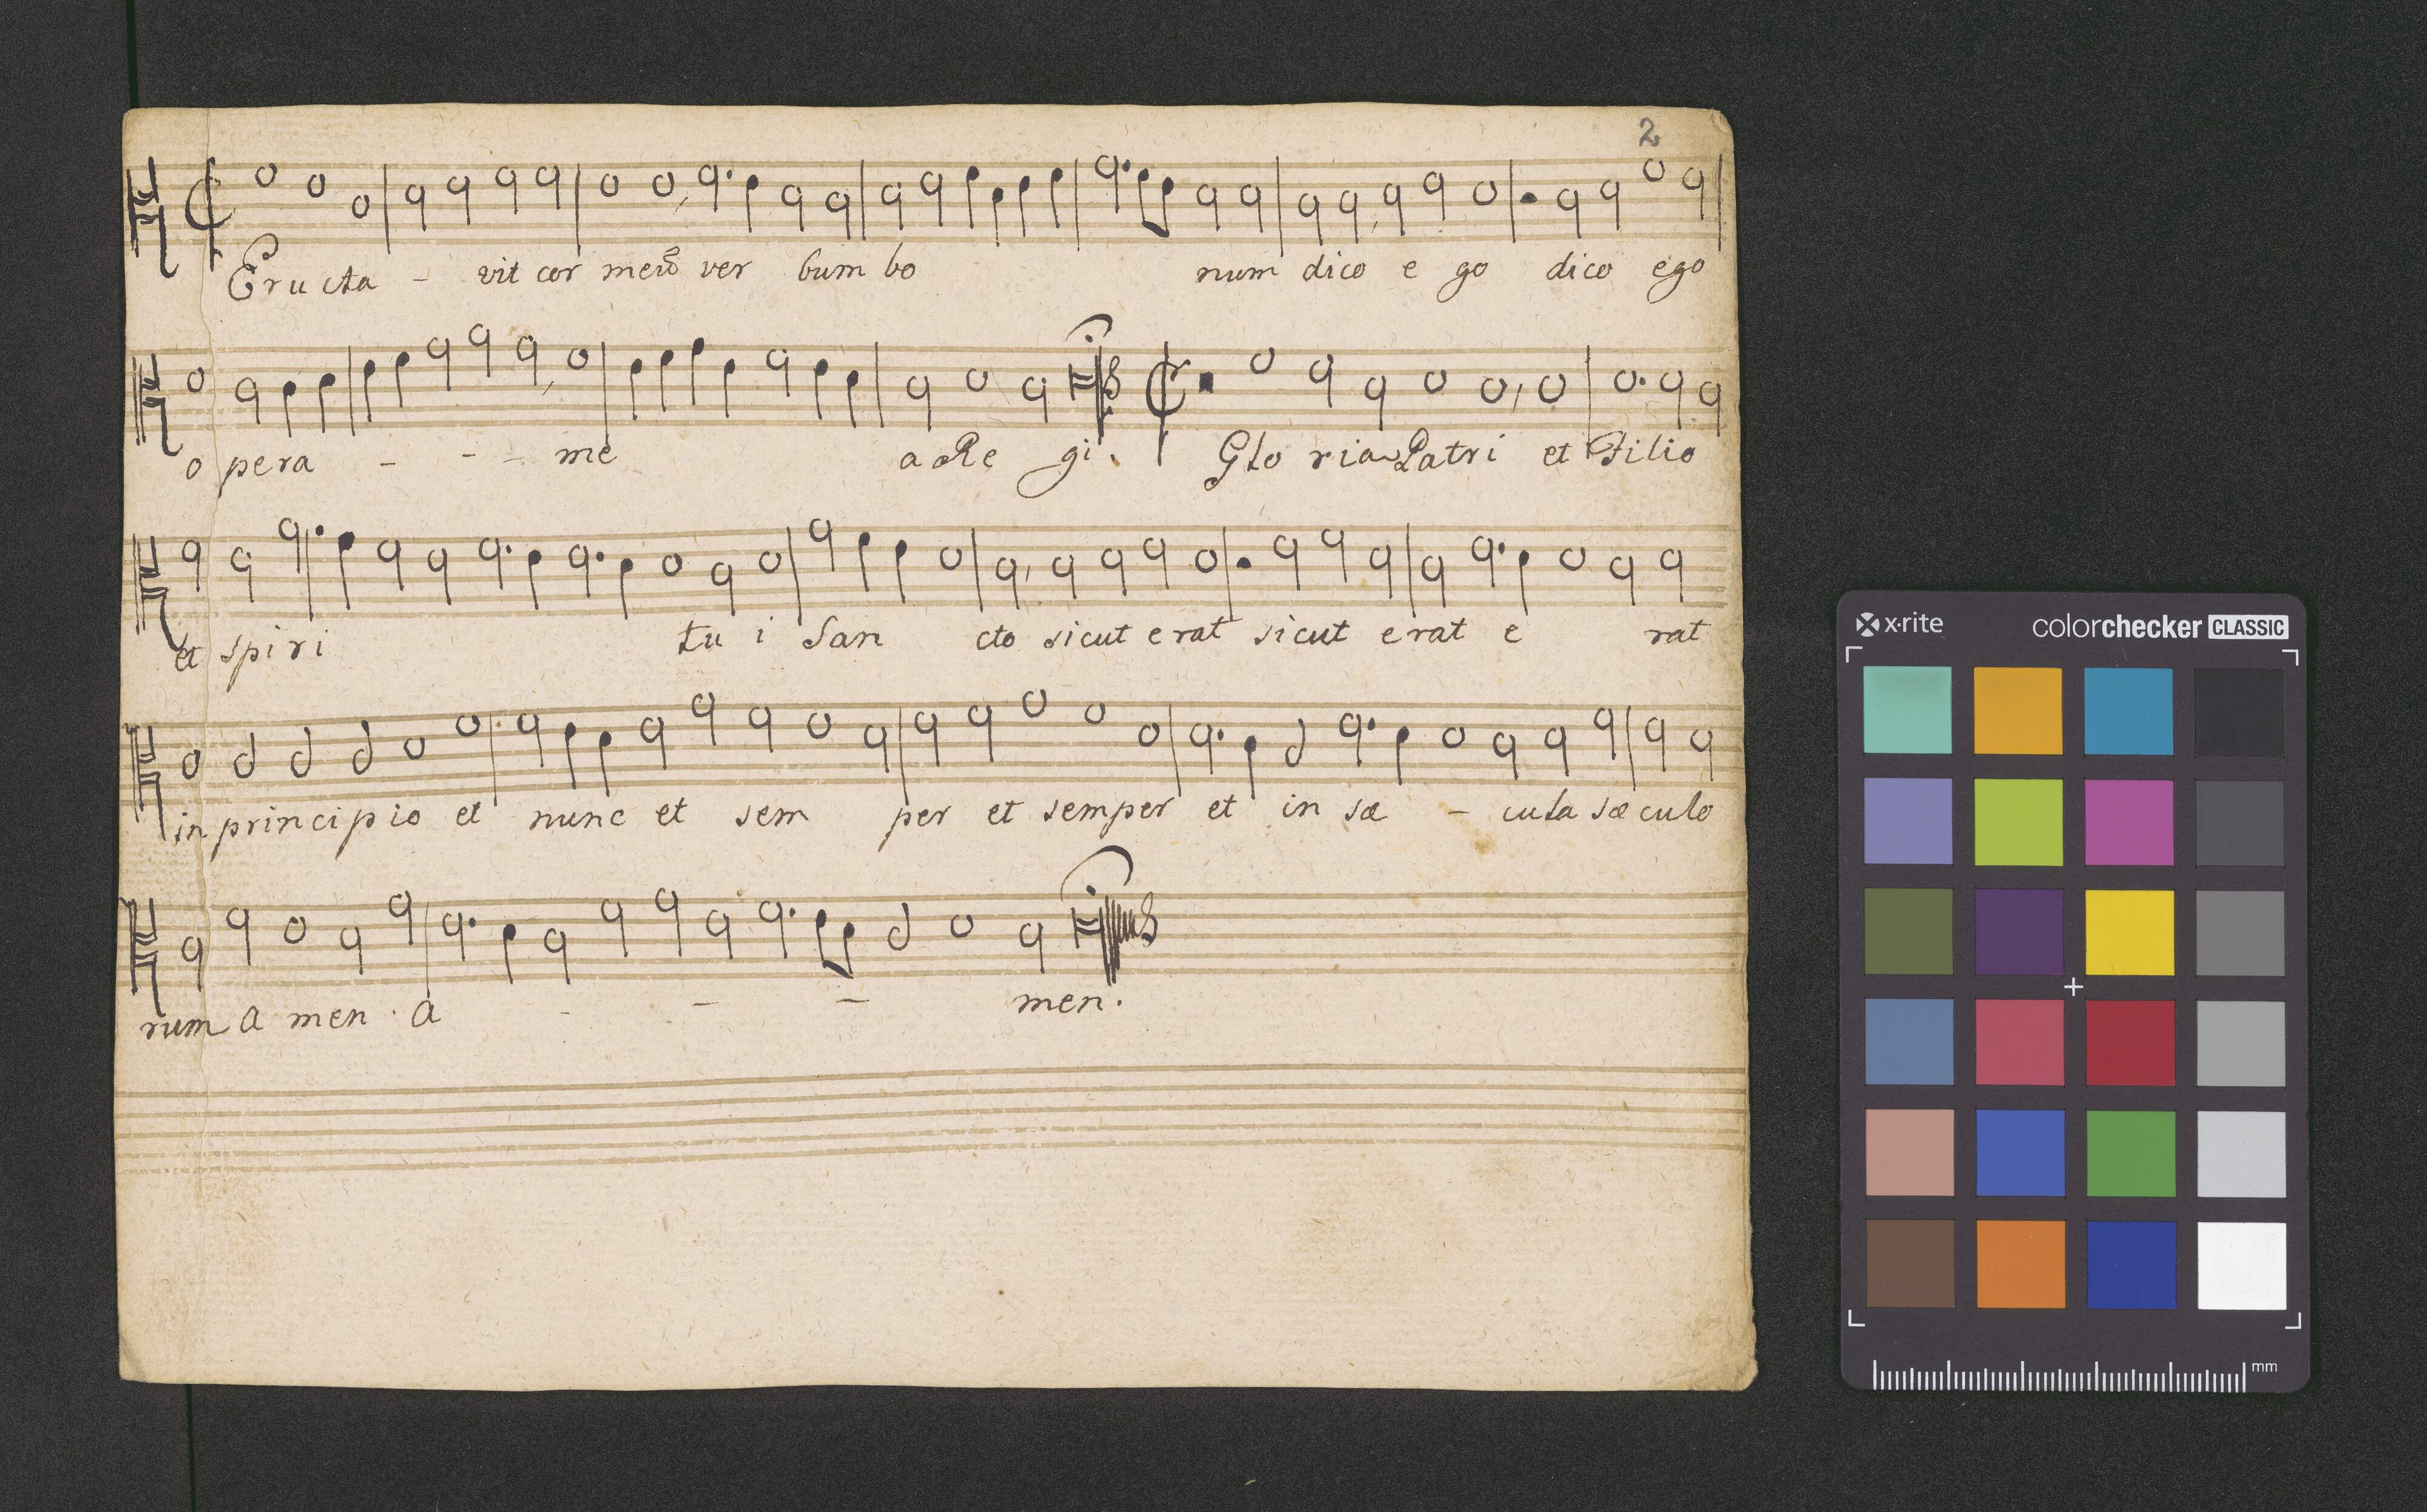 2
Eructa - vit cor meū ver bum bo num dico e go dico ego
o pera - - - me a Re gi.
Glo ria Patri et Filio
et spi ri tu i San cto sicut erat sicut erat e rat
in principio et nunc et sem per et semper et in sæ - cula sæculo
rum a men. A - - - men.
x-rite colorchecker CLASSIC
mm